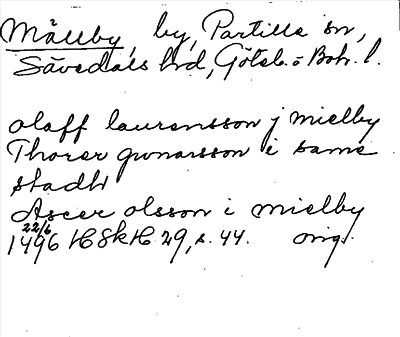 Mällby, by, Partille sn,
Sävedals hrd, Göteb. o Boh. l.
olaff laurensson j mielby
Thorer gwnarsson i same
stadh
Ascer olsson i mielby
22/6
1496 HSkH 29, s. 44. orig.